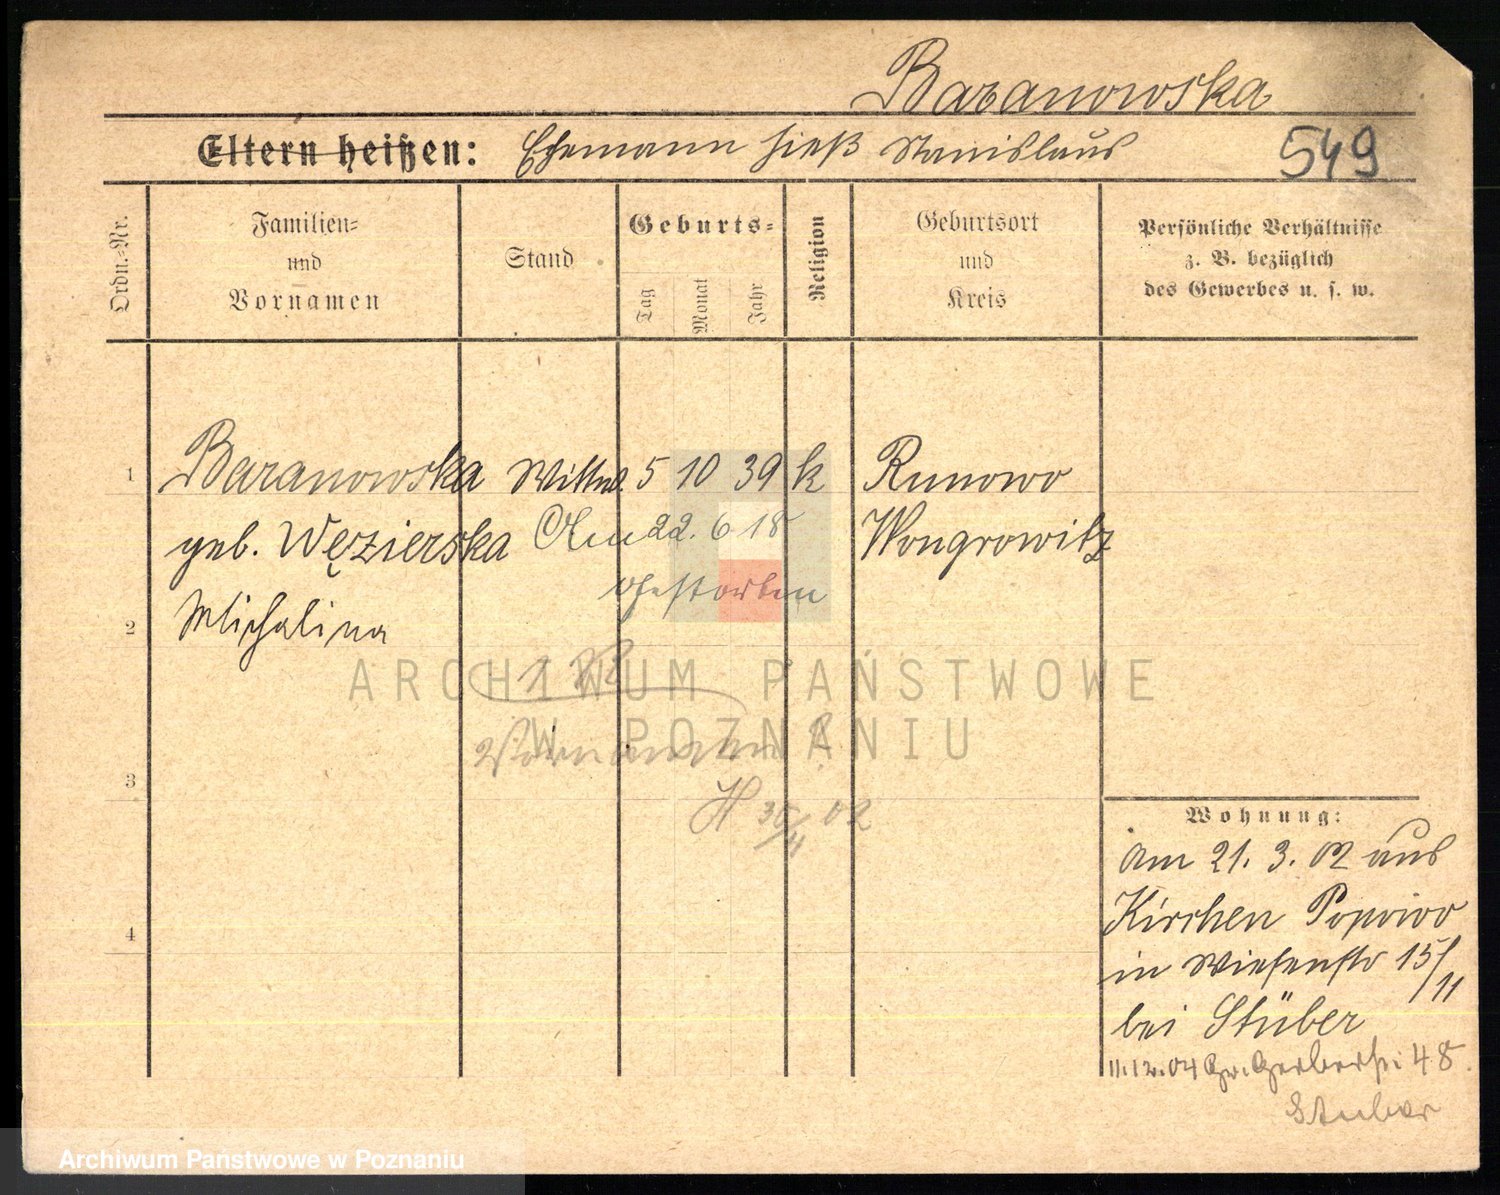 Baranowska
Eltern heißen: Ehemann hieß Stanislaus
549
Ordn.-Nr.
Familien-
und
Vornamen
Stand
Geburts-
Tag
Monat
Jahr
Religion
Geburtsort
und
Kreis
Persönliche Verhältnisse
z. B. bezüglich
des Gewerbes u. s. w.
1 Baranowska Wittw. 5 10 39 k Runowo
geb. Węzierska Am 22. 6 18 Wongrowitz
gestorben
2 Michalina
ARCHIWUM PAŃSTWOWE
W POZNANIU
3
4
Wohnung:
Am 21. 3. 02 aus
Kirchen Popowo
in Wiesenstr 15/11
bei Stüber
11.12.04 Gr. Gerberstr. 48.
Stuber
Archiwum Państwowe w Poznaniu